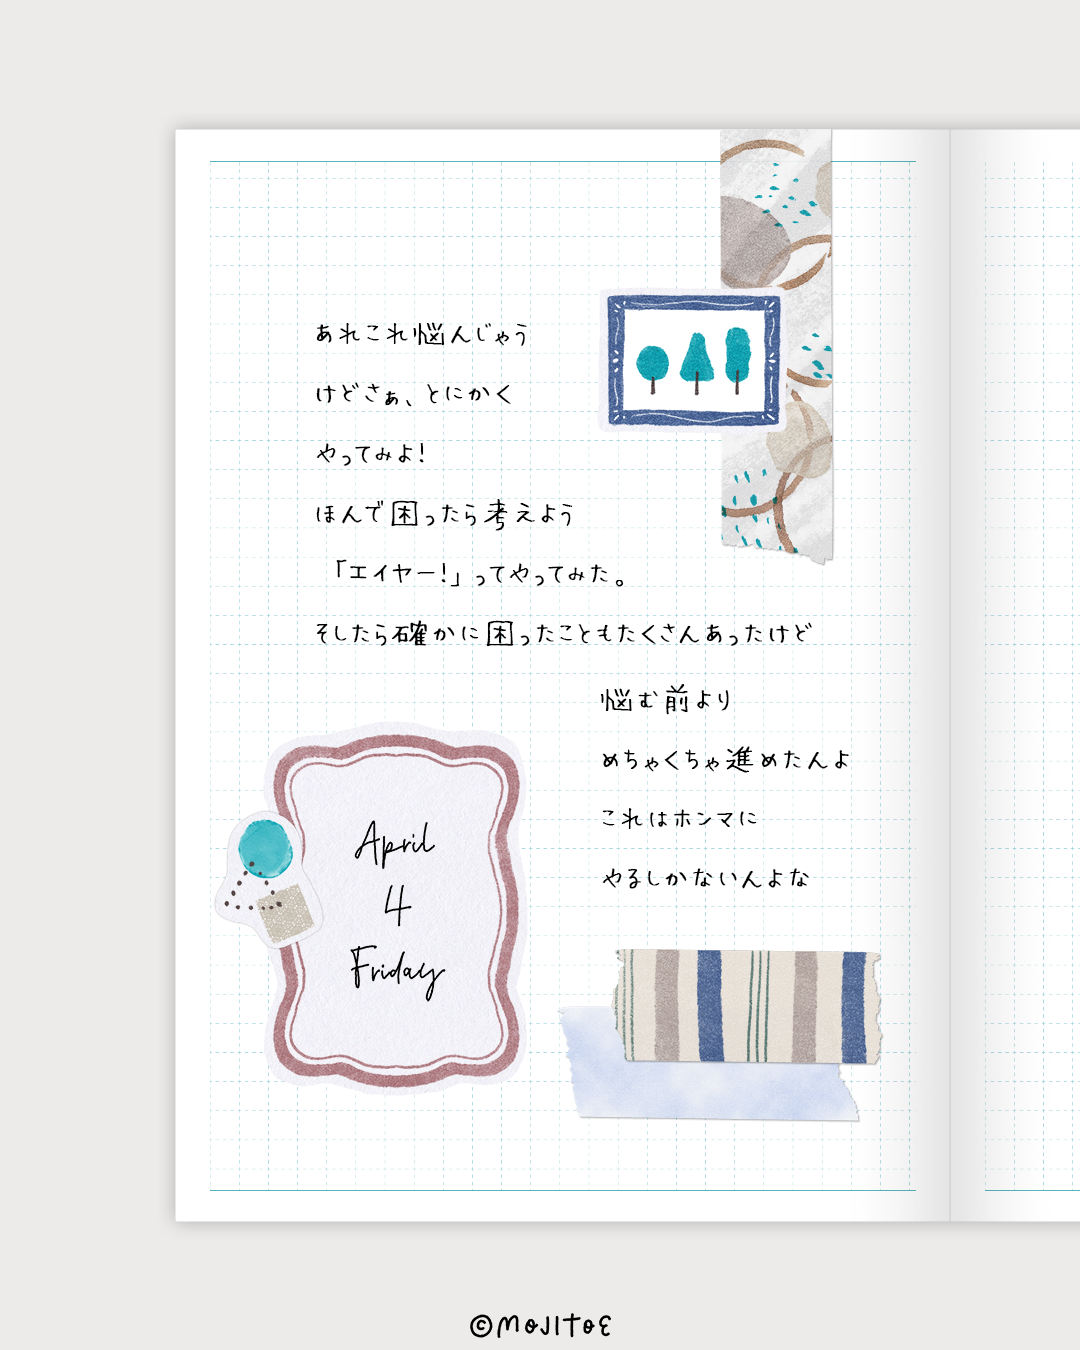 あれこれ悩んじゃう
けどさぁ、とにかく
やってみよ!
ほんで困ったら考えよう
「エイヤー!」ってやってみた。
そしたら確かに困ったこともたくさんあったけど
悩む前より
めちゃくちゃ進めたんよ
これはホンマに
やるしかないんよな
April
4
Friday
©MOJITOE